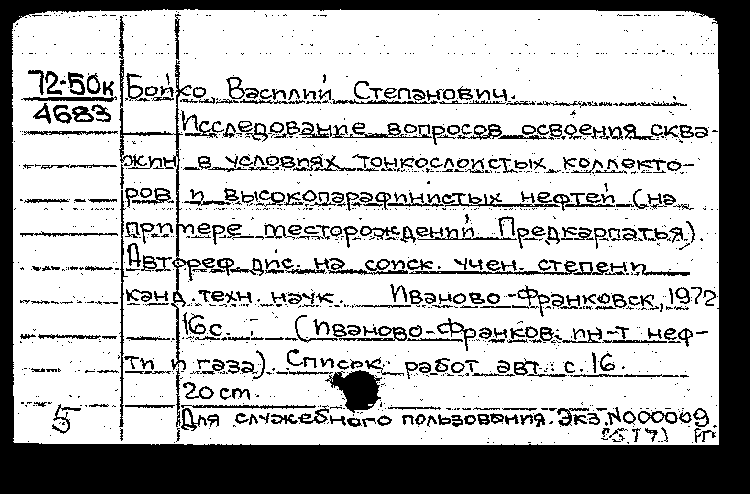 72-50к Бойко, Василий Степанович.
4683
Исследование вопросов освоения сква-
жин в условиях тонкослоистых коллекто-
ров и высокопарафинистых нефтей (на
примере месторождений Предкарпатья).
Автореф. дис. на соиск. учен. степени
канд. техн. наук. Иваново-Франковск, 1972
16с. (Иваново-Франков. ин-т неф-
ти и газа). Список работ авт.: с.16.
20 cm.
5 Для служебного пользования. Экз. N000009.